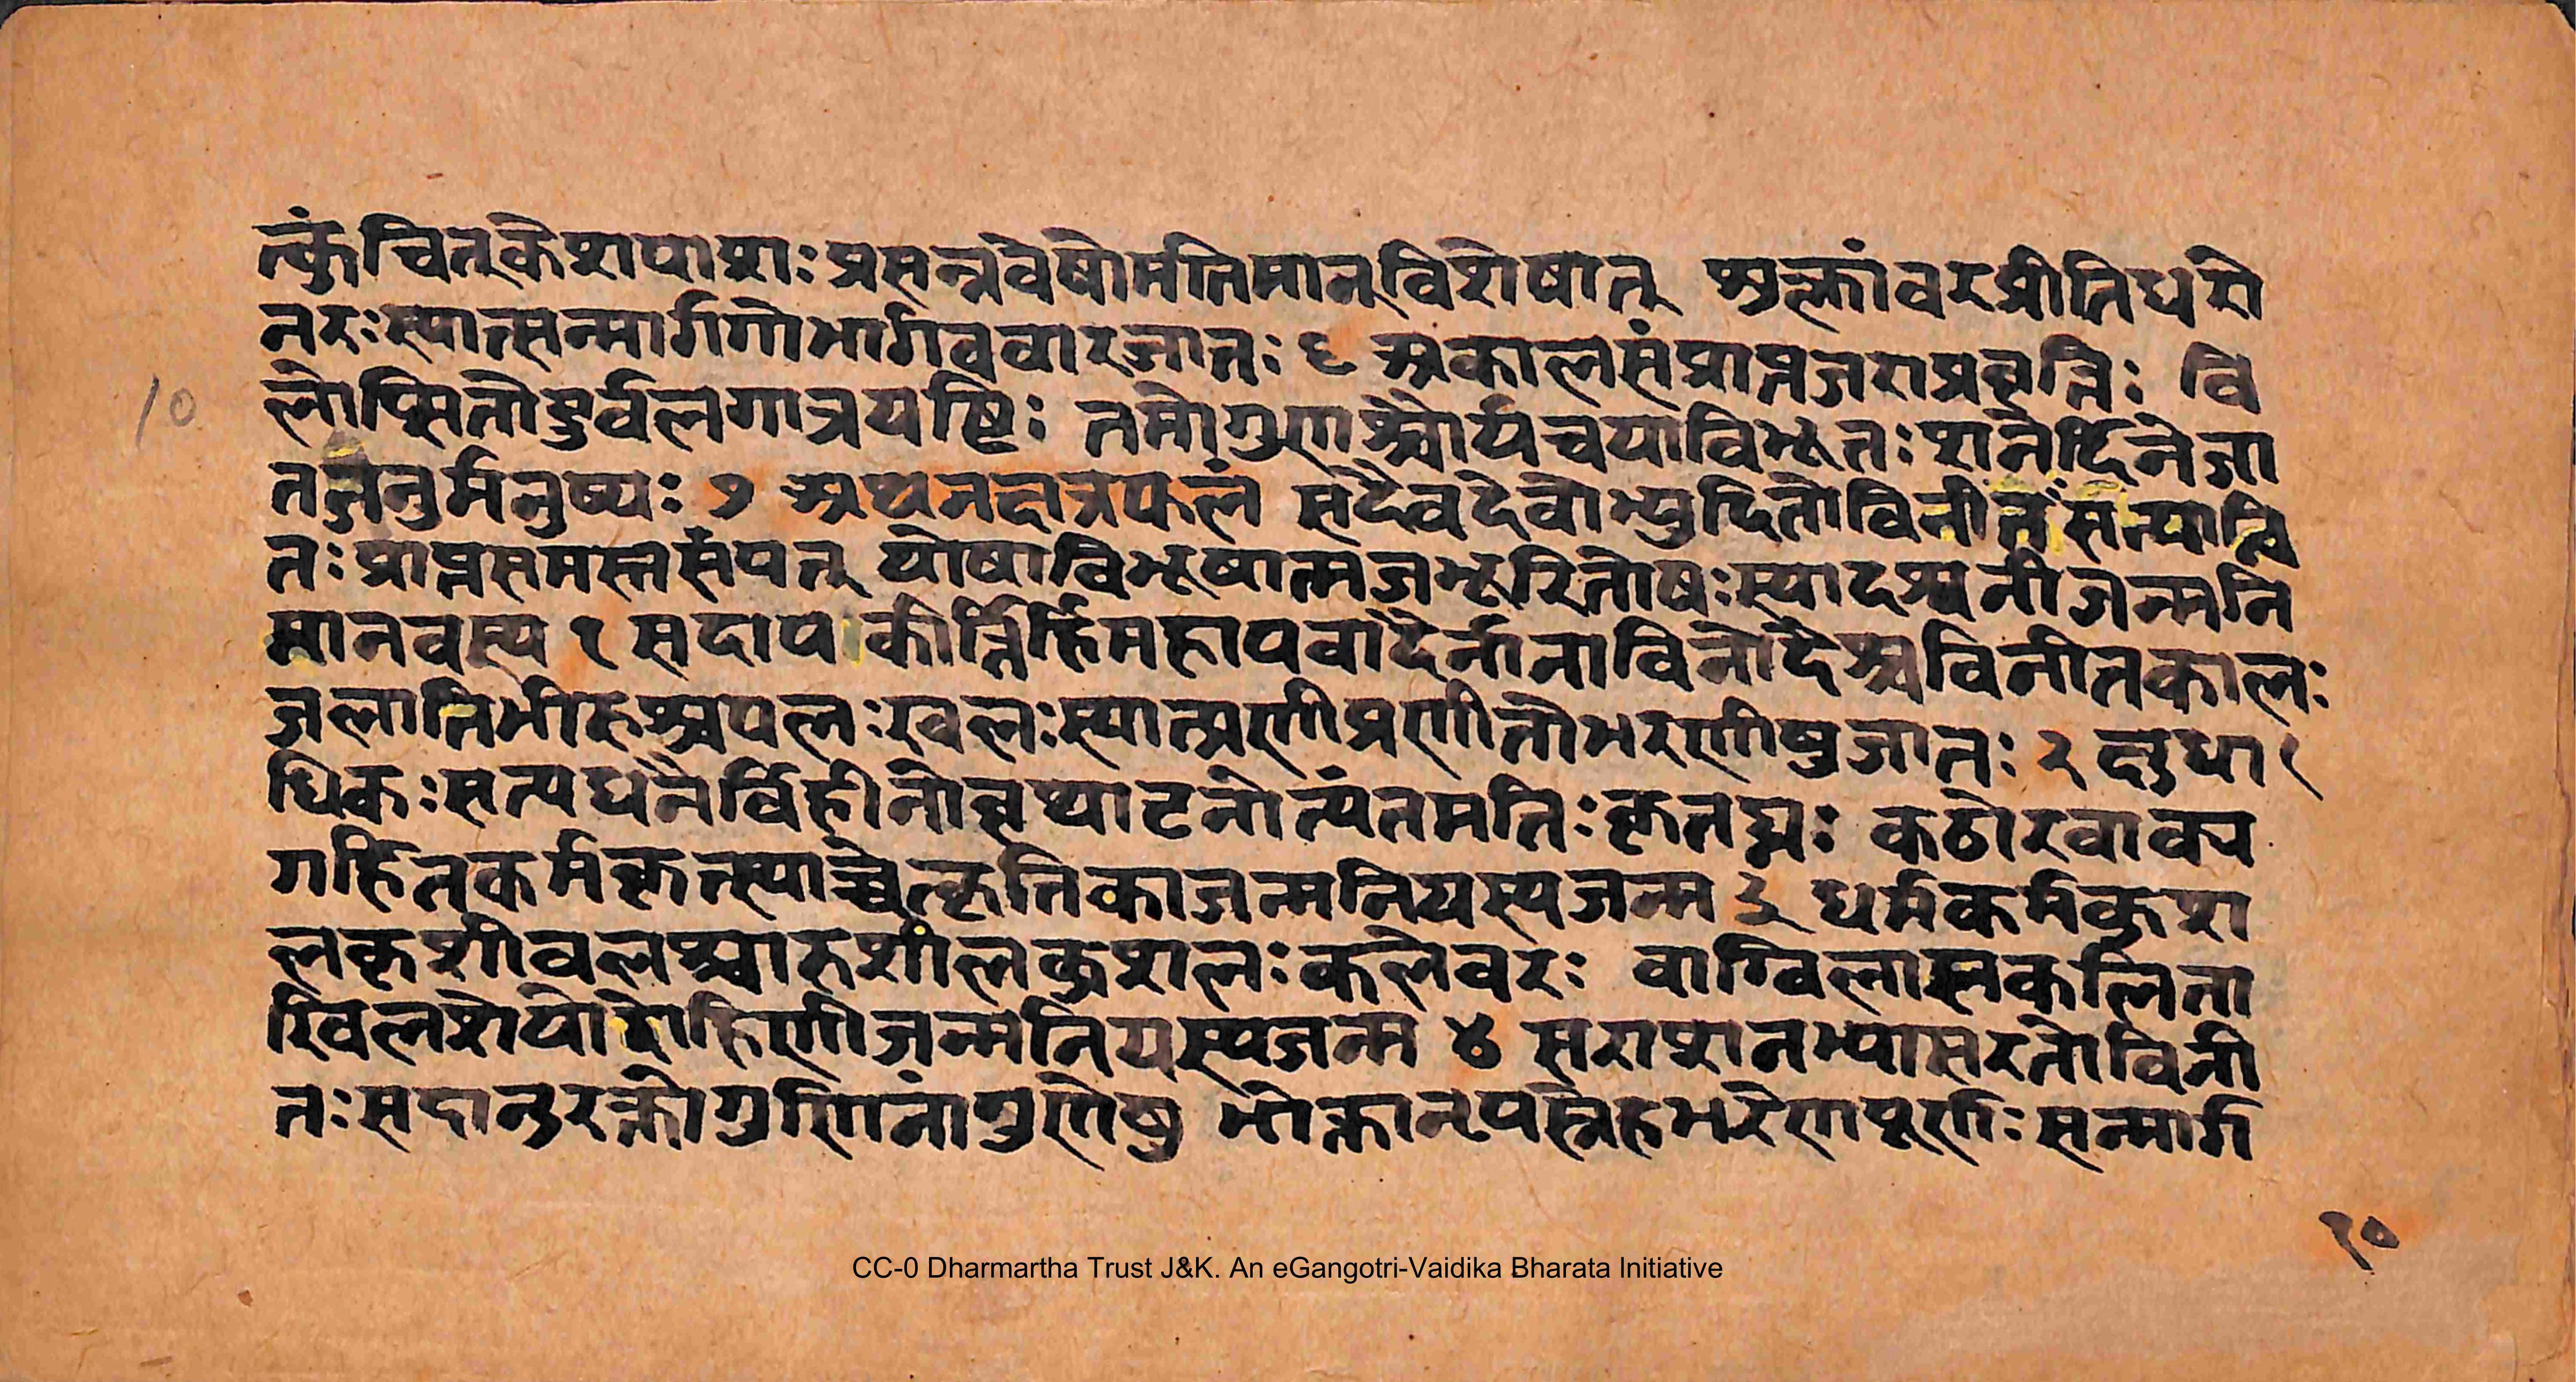 त्कुंचित्केशपाशः प्रसन्नवेषोमतिमान्विशेषात् शुक्लांवरप्रीतिधरो
नरःस्यात्सन्मार्गगोभार्गववारजातः ६ अकालसंप्राप्तजराप्रवृत्तिः वि
लोप्सितोदुर्वलगात्रयष्टिः तमोगुणश्चौर्यचयाविभूतः शनेर्दिनेजा
तजनुर्मनुष्यः ७ अथनक्षत्रफलं सदैवदेवाभ्युदितोविनीतःसत्यान्वि
तःप्राप्तसमस्तसंपत् योषाविभूषात्मजभूरितोषःस्यादश्वनीजन्मनि
मानवस्य १ सदापकीर्त्तिर्हिमहापवादैर्नानाविनोदैश्चविनीतकालः
जलातिभीरुश्चपलःखलःस्यात्प्राणीप्रणीतोभरणीषुजातः २ क्षुधा
धिकःसत्यधनैर्विहीनोवृथाटनोत्यंतमतिःकृतघ्नः कठोरवाक्य
गर्हितकर्मकृत्स्याच्चेत्कृतिकाजन्मनियस्यजन्म ३ धर्मकर्मकुश
लकृशीवलश्चारुशीलकुशलःकलेवरः वाग्विलासकलिता
खिलशेपोरोहिणीजन्मनियस्यजन्म ४ सराशनभ्यासरतोविनी
तःसदानुरक्तोगुणिनांगुणेषु भोक्तानृपस्नेहभरेणपूर्णःसन्मार्ग
10
१०
CC-0 Dharmartha Trust J&K. An eGangotri-Vaidika Bharata Initiative